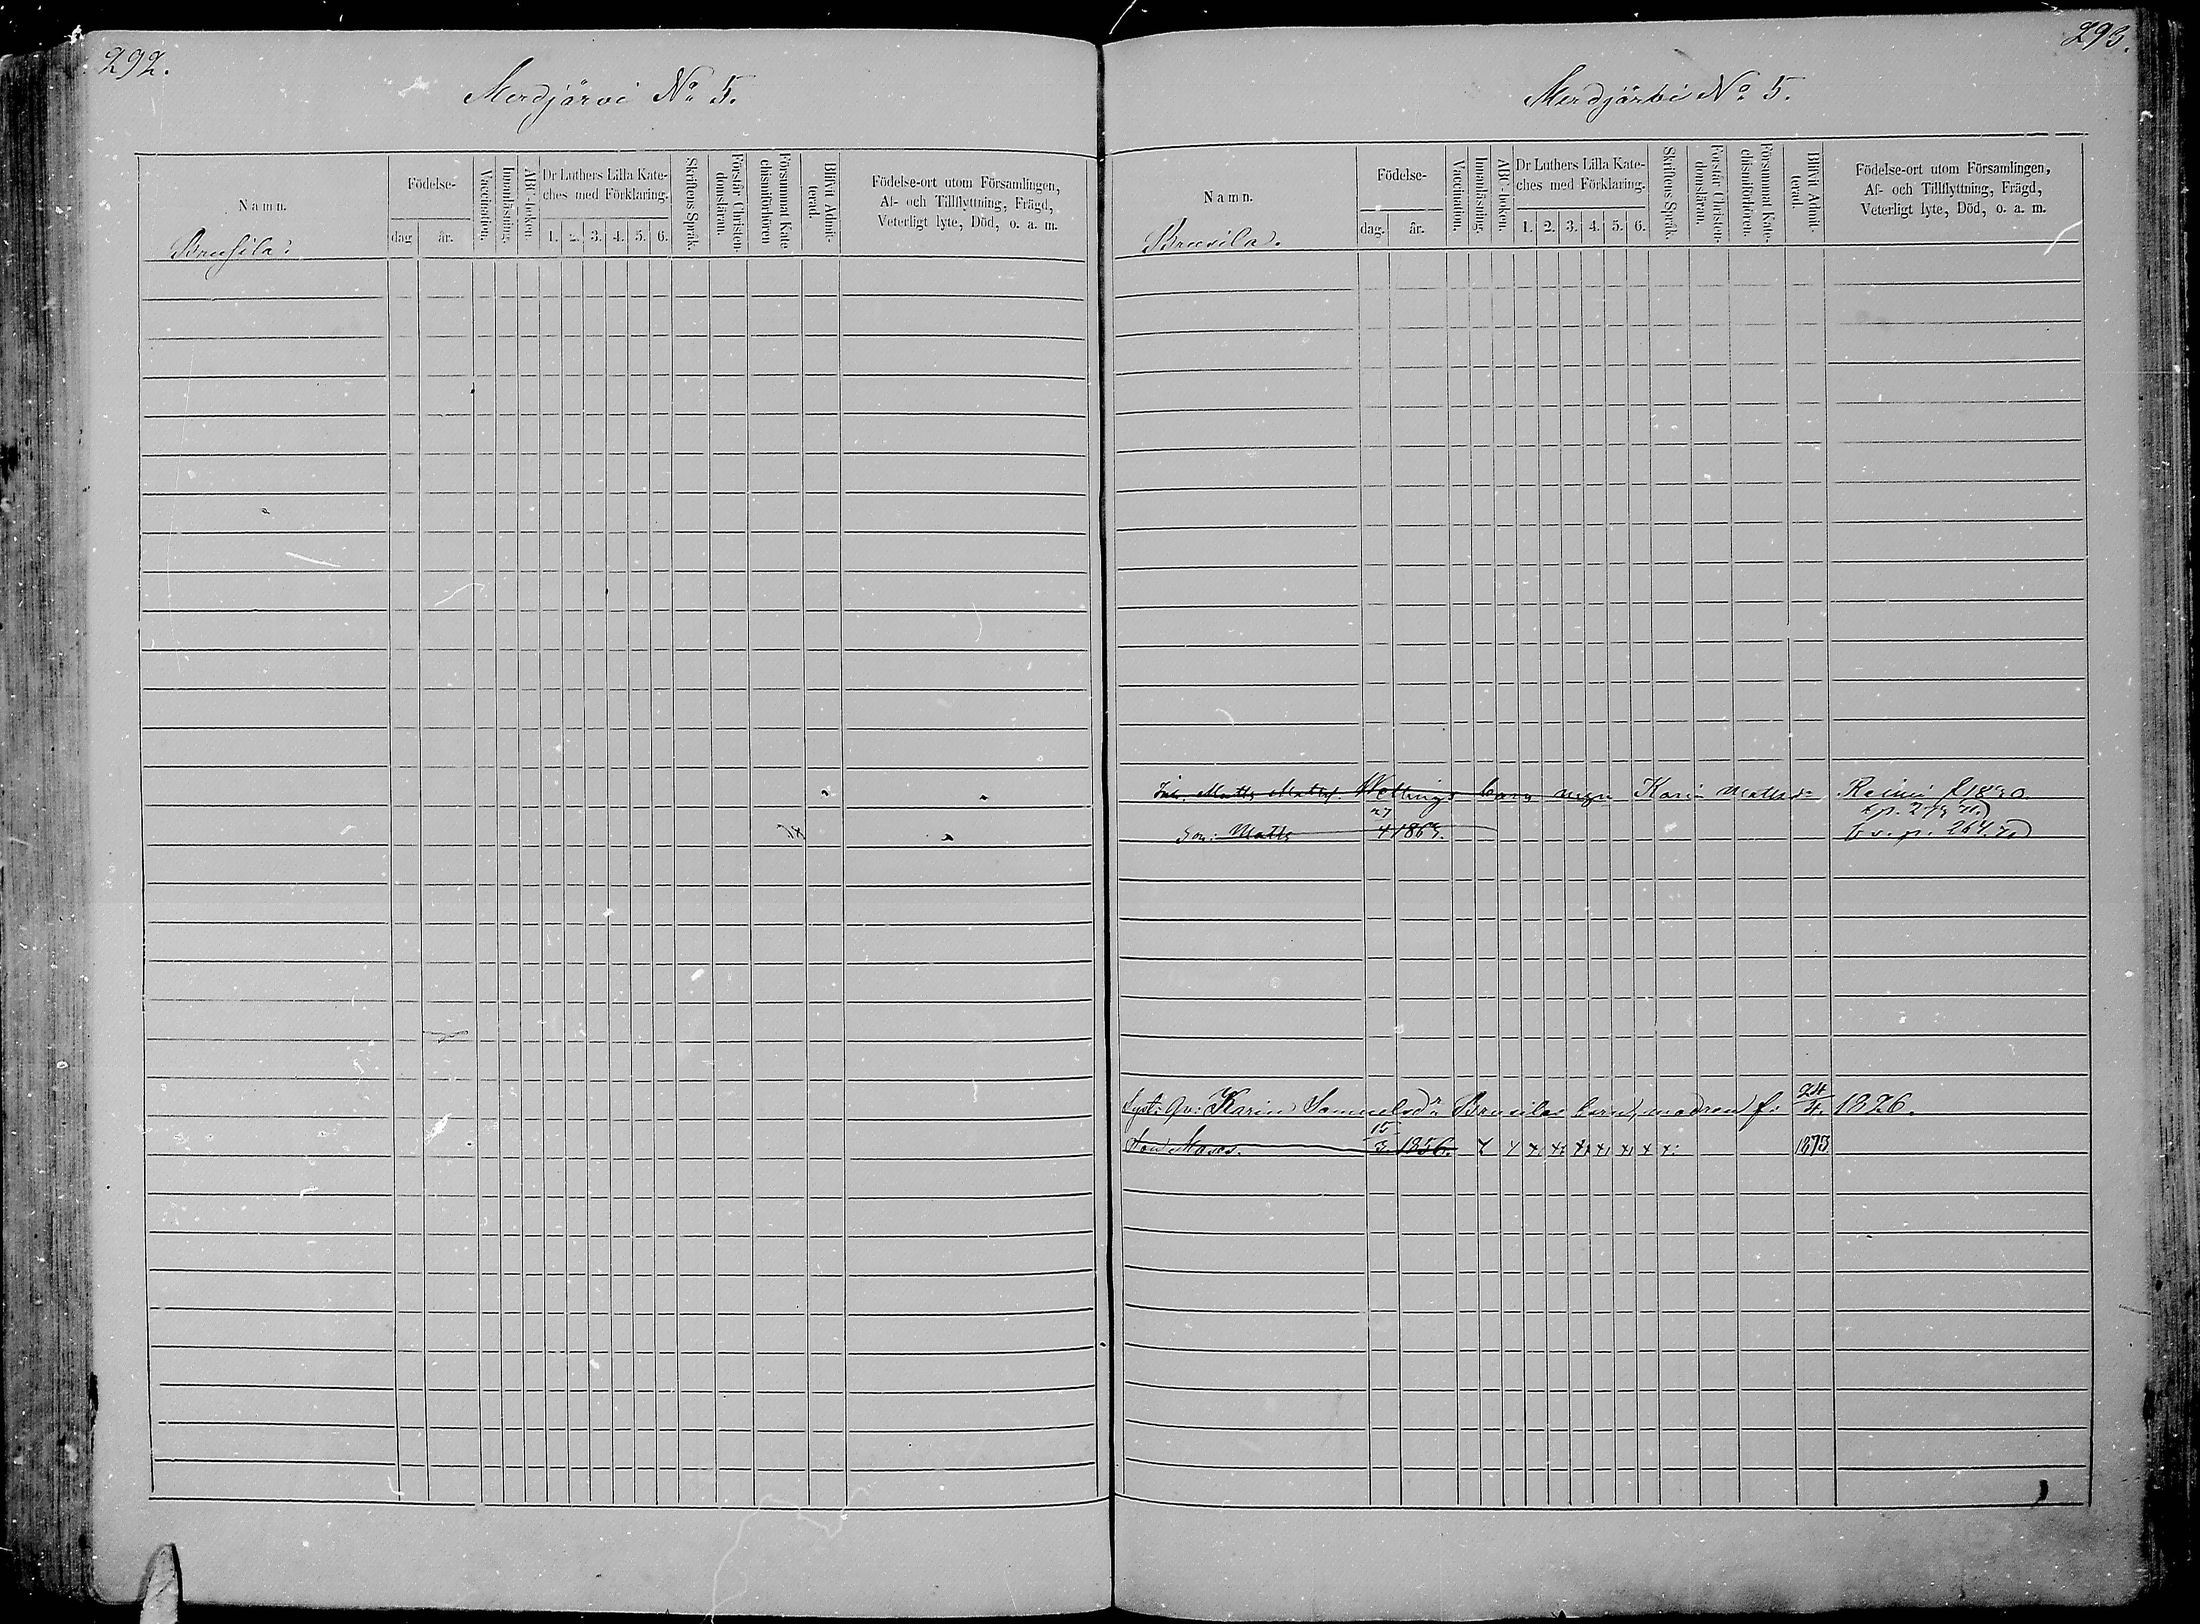 292.
Merdjärvi No 5.
Namn.
Brusila.
Födelse-
dag
år.
Vaccination.
Innanläsning.
ABC-boken.
Dr Luthers Lilla Kate-
ches med Förklaring.
1. 2. 3. 4. 5. 6.
Skriftens Språk.
Förstår Christen-
domsläran.
Försummat Kate-
chismiförhören
Blifvit Admit-
terad.
Födelse-ort utom Församlingen,
Af- och Tillflyttning, Frägd,
Veterligt lyte, Död, o. a. m.
293.
Merdjärvi No 5.
Namn.
Brusila.
Födelse-
dag.
år.
Vaccination.
Innanläsning.
ABC-boken.
Dr Luthers Lilla Kate-
ches med Förklaring.
1. 2. 3. 4. 5. 6.
Skriftens Språk.
Förstår Christen-
domsläran.
Försummat Kate-
chismiförhören.
Blifvit Admit-
terad.
Födelse-ort utom Församlingen,
Af- och Tillflyttning, Frägd,
Veterligt lyte, Död, o. a. m.
Inh. Matts Mattss. barn Karin Mattsdr 1830
Son: Matts 27/4 186 p. 264
Karin Samuelsdr Brusilas barn, modren f: 24/4 1826.
Son Moses. 15/3 1856. 1873